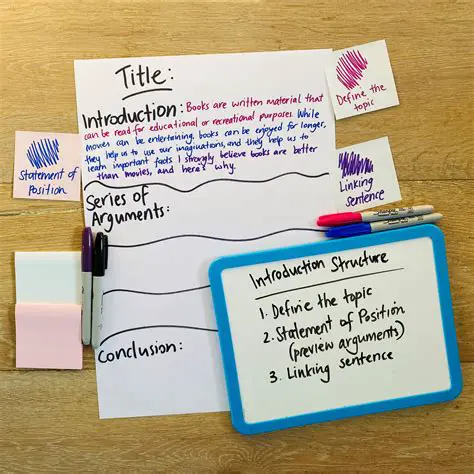 Title:
Introduction: Books are written material that
can be read for educational or recreational purposes. While
movies can be entertaining, books can be enjoyed for longer,
they help us to use our imaginations, and they help us to
learn important facts. I strongly believe books are better
than movies, and here's why.
Define the
topic
Statement of
Position
Linking
sentence
Series of
Arguments:
Conclusion:
Introduction Structure
1. Define the topic
2. Statement of Position
(preview arguments)
3. Linking sentence